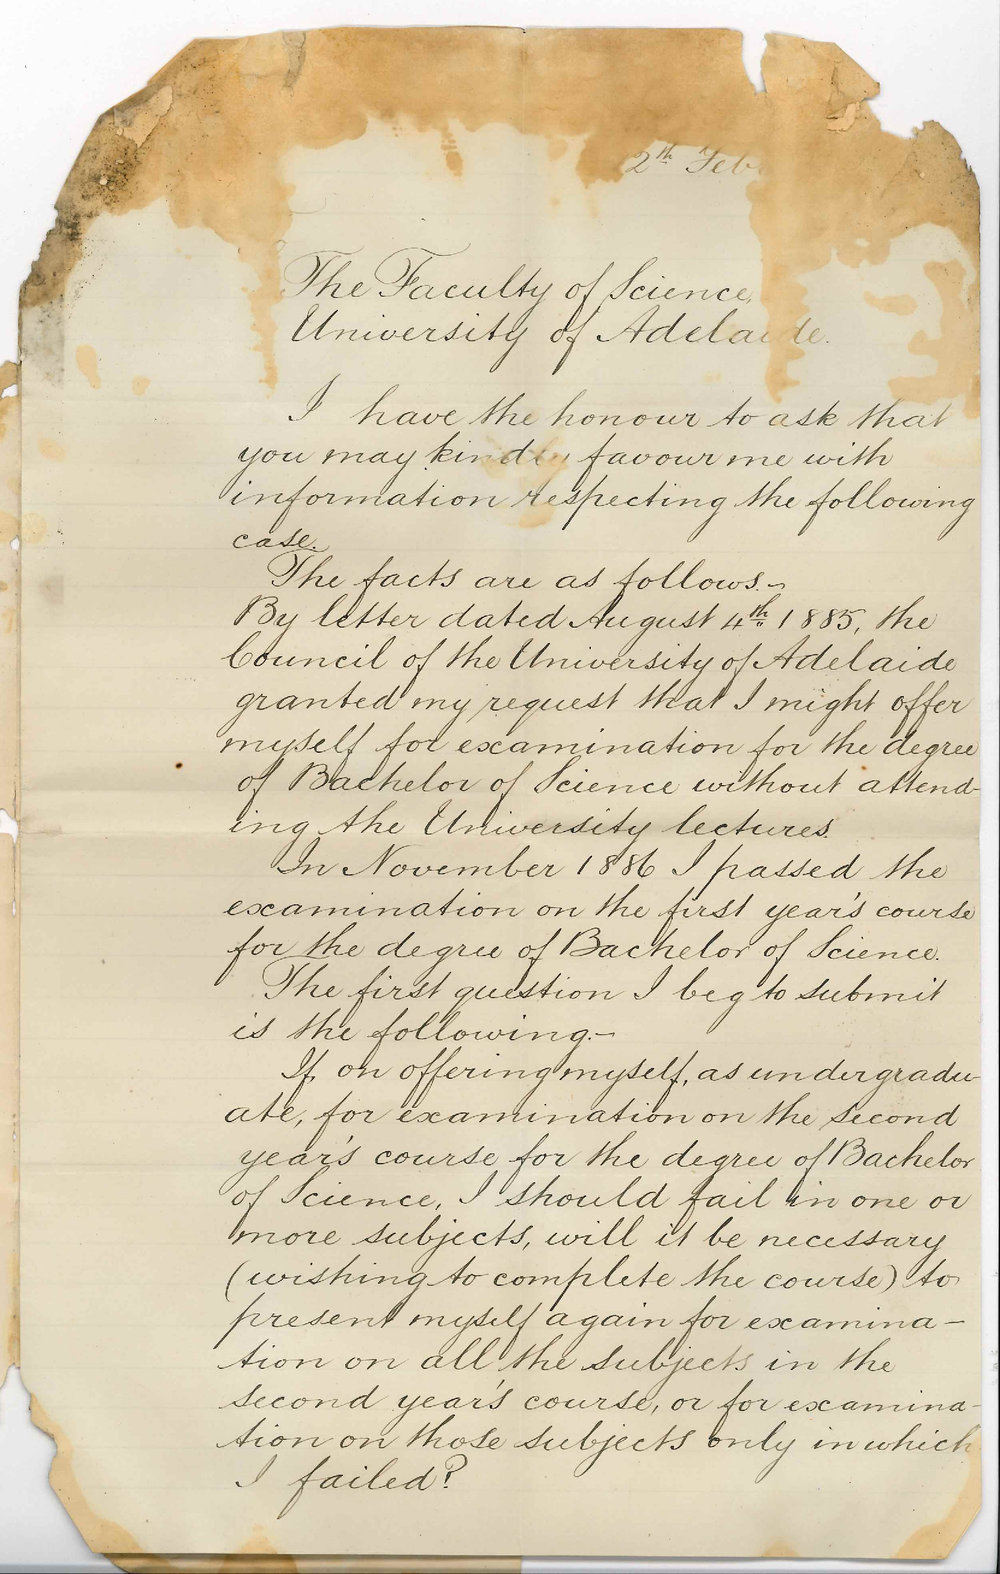 2th Feb
The Faculty of Science,
University of Adelaide.
I have the honour to ask that
you may kindly favour me with
information respecting the following
case.
The facts are as follows.—
By letter dated August 4th 1885, the
Council of the University of Adelaide
granted my request that I might offer
myself for examination for the degree
of Bachelor of Science without attend-
ing the University lectures.
In November 1886 I passed the
examination on the first year's course
for the degree of Bachelor of Science.
The first question I beg to submit
is the following.—
If, on offering myself, as undergradu-
ate, for examination on the second
year's course for the degree of Bachelor
of Science, I should fail in one or
more subjects, will it be necessary
(wishing to complete the course) to
present myself again for examina-
tion on all the subjects in the
second year's course, or for examina-
tion on those subjects only in which
I failed?